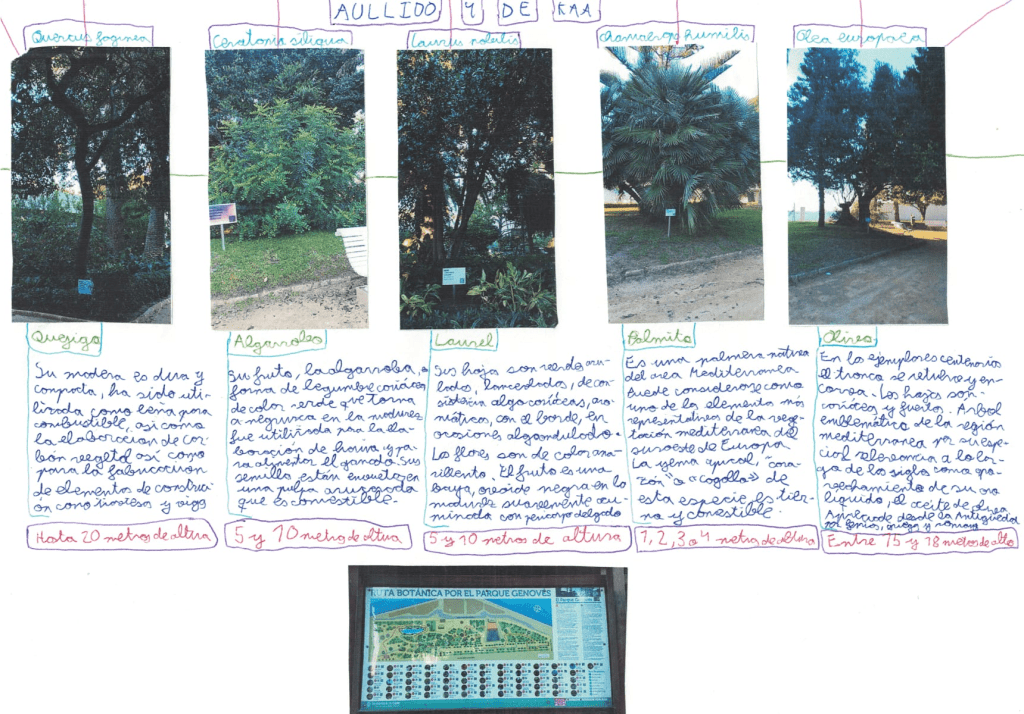 AULLIDO Y DE KAA
Quercus faginea
Ceratonia siliqua
Laurus nobilis
Chamaerops humilis
Olea europaea
Quejigo
Su madera es dura y
compacta, ha sido uti-
lizada como leña para
combustible, así como
la elaboracion de car-
bón vegetal así como
para la fabricacion
de elementos de construc-
ción como traviesas y vigas
Hasta 20 metros de altura
Algarrobo
Su fruto, la algarroba, a
forma de legumbre coriácea
de color verde que torna
a negrusca en la madurez
fue utilizada para la ela-
boración de harina y pa-
ra alimentar el ganado. Sus
semillas están envuelta en
una pulpa azucarada
que es comestible
5 y 10 metro de altura
Laurel
Sus hoja son verde azu-
lados, lanceolados, de con-
sistencia algo coriáceas, aro-
máticos, con el borde, en
ocasiones algo ondulado.
La flores son de color ama-
rillento. El fruto es una
baya, ovoide negra en la
madurez suavemente acu-
minada con pericarpo delgado
5 y 10 metros de altura
Palmito
Es una palmera nativa
del area Mediterranea
Puede considerarse como
uno de los elemento más
representativa de la vege-
tación mediterranea del
suroeste de Europa
La yema apical, cora-
zón "o «cogollo» de
esta especie, es tier-
na y comestible.
1, 2, 3 o 4 metro de altura
Olivo
En los ejemplares centenarios
el tronco se retuerce y en-
corva. Las hojas son
coriáceas y fuertes. Arbol
emblemático de la región
mediterranea por su espe-
cial relevancia a lo lar-
go de los siglos como apro-
vechamiento de su oro
líquido, el aceite de oliva
Apreciado desde la Antigüedad
por fenicios, griegos y romanos
Entre 15 y 18 metros de alto
RUTA BOTÁNICA POR EL PARQUE GENOVÉS